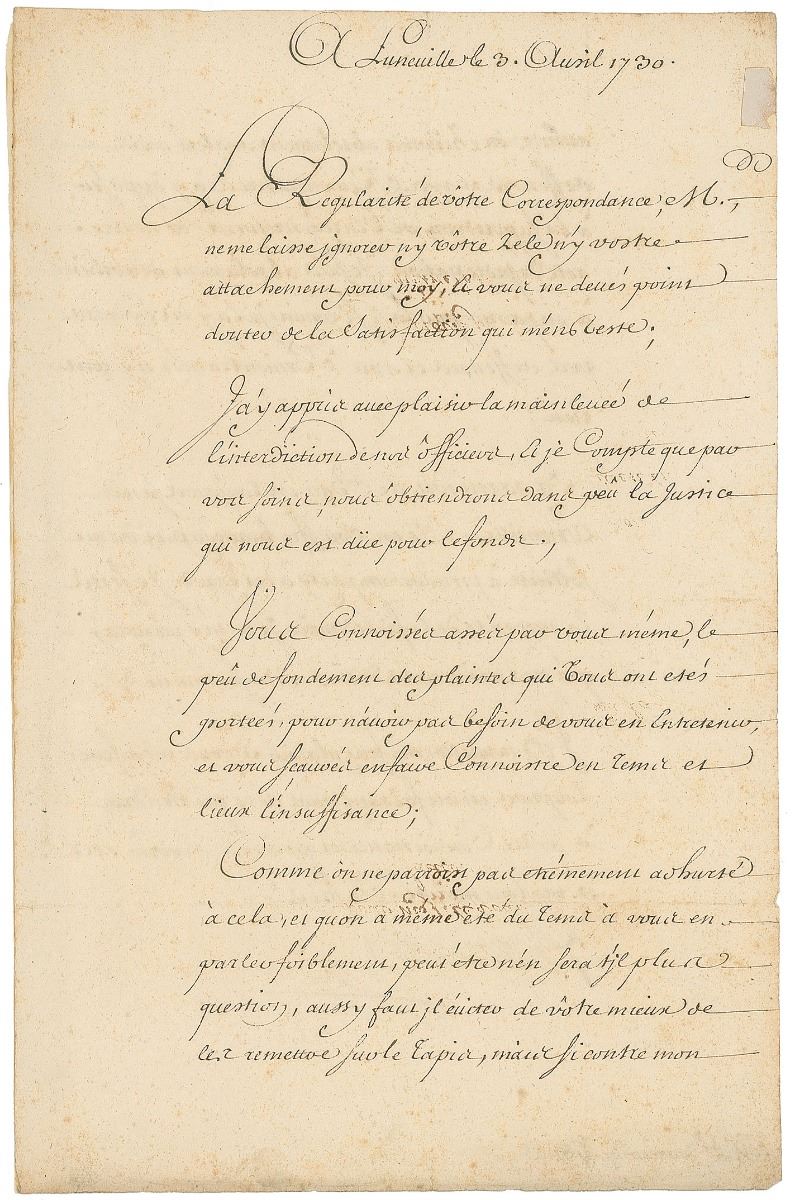 A Luneville le 3. Avril 1730.
La Regularité de vôtre Correspondance, M.,
ne me laisse jgnorer n'y vôtre zele n'y vostre
attachement pour moy, & vous ne devés point
douter de la Satisfaction qui m'en Reste.,
J'ay appris avec plaisir la mainlevée de
l'interdiction de nos officiers, & je Compte que par
vos soins nous obtiendrons dans peu la Justice
qui nous est düe pour le fonds.,
Vous Connoissés assés par vous même, le
peu de fondement des plaintes qui vous ont etés
portées, pour n'avoir pas besoin de vous en Entretenir,
et vous sçavés en faire Connoistre en Tems et
lieux l'insuffisance;
Comme on ne paroist pas extrémement ahurté
à cela, et qu'on a même été du Tems à vous en
parler foiblement, peut être n'en sera t'jl plus
question, aussy faut jl éviter de vôtre mieux de
les remettre sur le Tapis, mais si contre mon